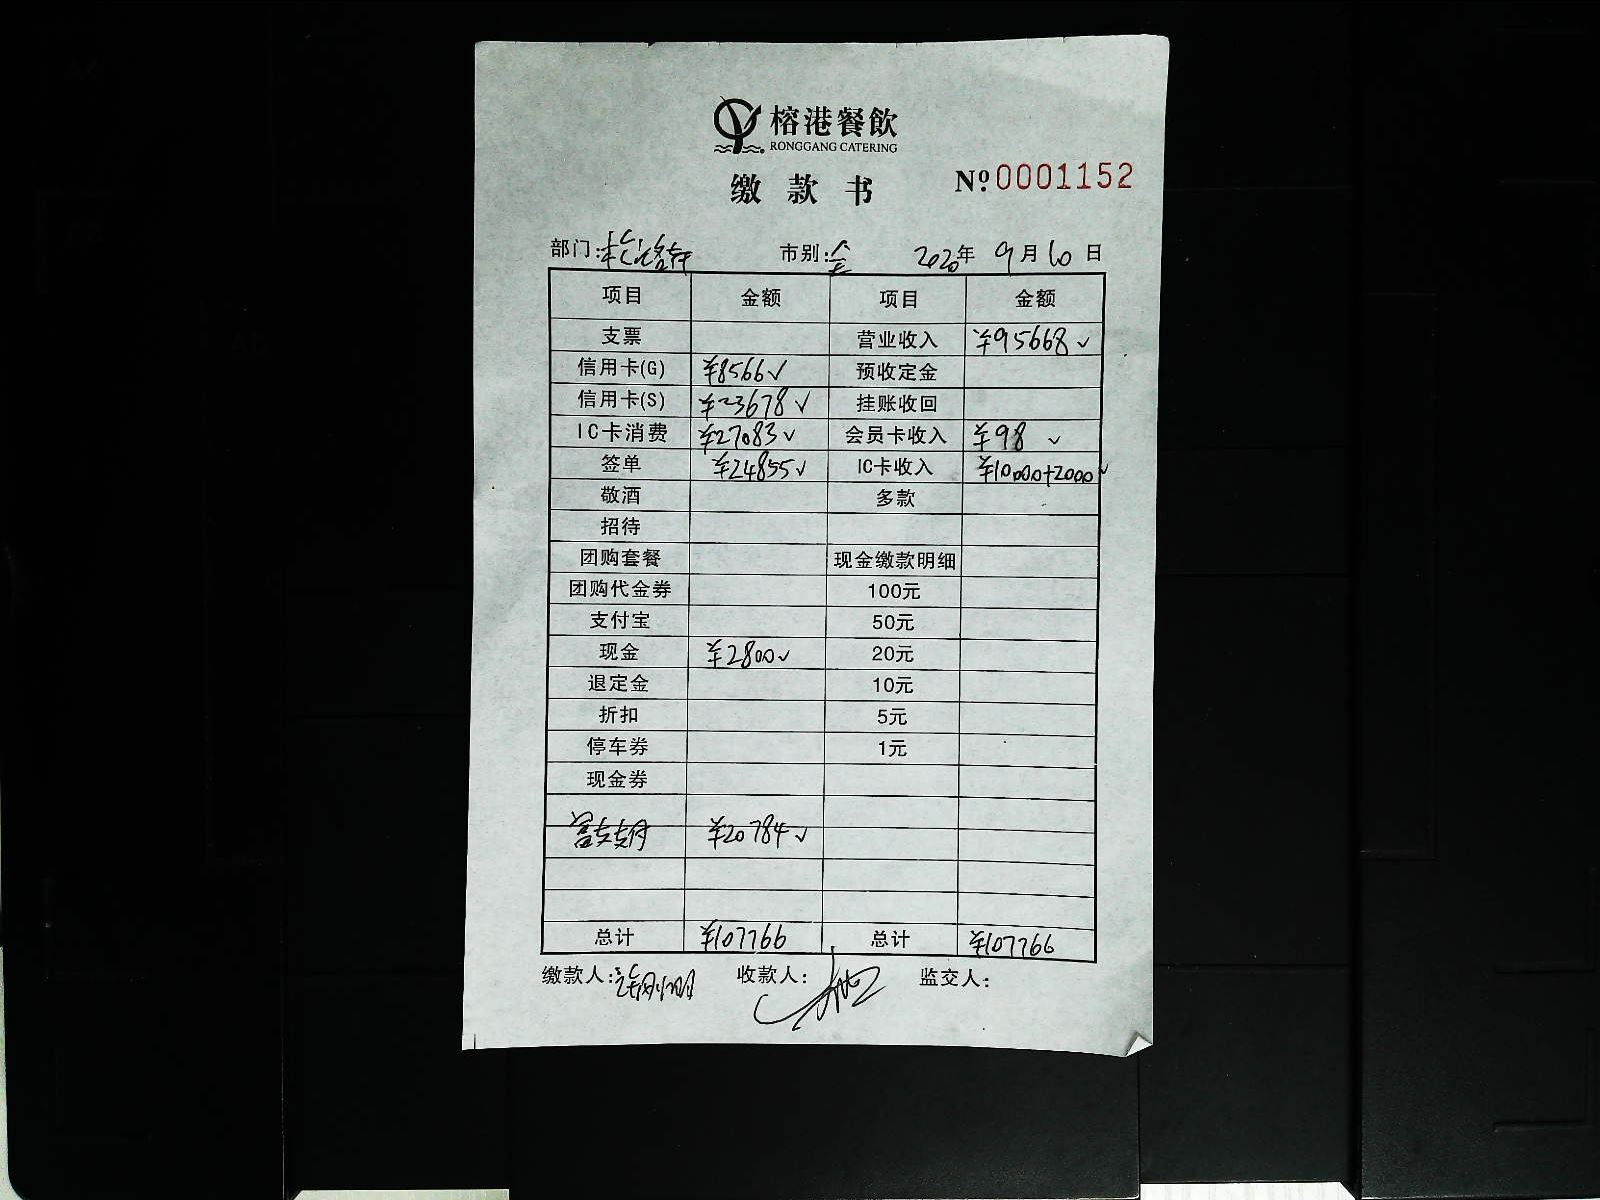 榕港餐飲
RONGGANG CATERING
缴款书 №0001152
部门: 市别:全 2020年 9月10日
项目 金额 项目 金额
支票 营业收入 ¥95668✓
信用卡(G) ¥8566✓ 预收定金
信用卡(S) ¥23678✓ 挂账收回
IC卡消费 ¥27083✓ 会员卡收入 ¥98 ✓
签单 ¥24855✓ IC卡收入 ¥10000+2000✓
敬酒 多款
招待
团购套餐 现金缴款明细
团购代金券 100元
支付宝 50元
现金 ¥2800✓ 20元
退定金 10元
折扣 5元
停车券 1元
现金券
¥20784✓
总计 ¥107766 总计 ¥107766
缴款人: 收款人: 监交人: